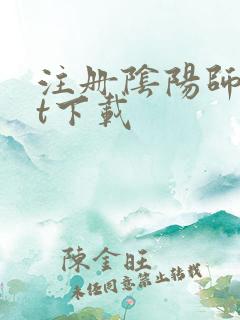 注册陰陽師
t下載
陳金旺
未经同意禁止转载